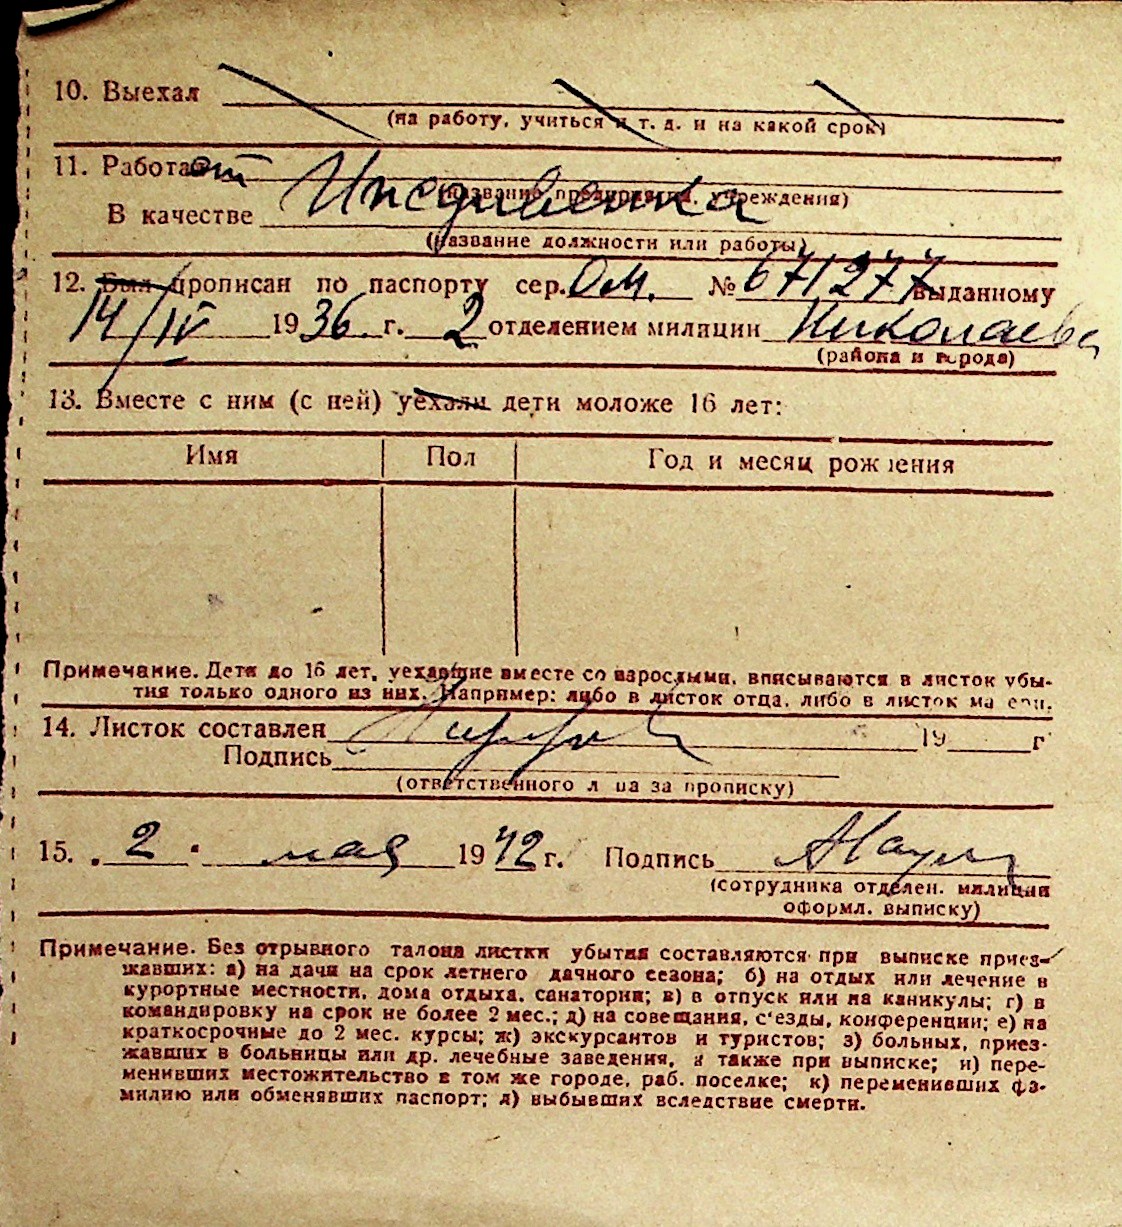 10. Выехал
(на работу, учиться и т. д. и на какой срок)
11. Работает
Иждивенка
(название предприятия, учреждения)
В качестве
(название должности или работы)
12. Был прописан по паспорту сер. О.М. № 671277 выданному
14/IV 1936 г. 2 отделением милиции Николаева
(района и города)
13. Вместе с ним (с ней) уехали дети моложе 16 лет:
Имя Пол Год и месяц рождения
Примечание. Дети до 16 лет, уехавшие вместе со взрослыми, вписываются в листок убы-
тия только одного из них. Например: либо в листок отца, либо в листок матери.
14. Листок составлен 19 г
Подпись
(ответственного лица за прописку)
15. 2 мая 1942 г. Подпись
(сотрудника отделен. милиции
оформл. выписку)
Примечание. Без отрывного талона листки убытия составляются при выписке приез-
жавших: а) на дачи на срок летнего дачного сезона; б) на отдых или лечение в
курортные местности, дома отдыха, санатории; в) в отпуск или на каникулы; г) в
командировку на срок не более 2 мес.; д) на совещания, с'езды, конференции; е) на
краткосрочные до 2 мес. курсы; ж) экскурсантов и туристов; з) больных, приез-
жавших в больницы или др. лечебные заведения, а также при выписке; и) пере-
менивших местожительство в том же городе, раб. поселке; к) переменивших фа-
милию или обменявших паспорт; л) выбывших вследствие смерти.